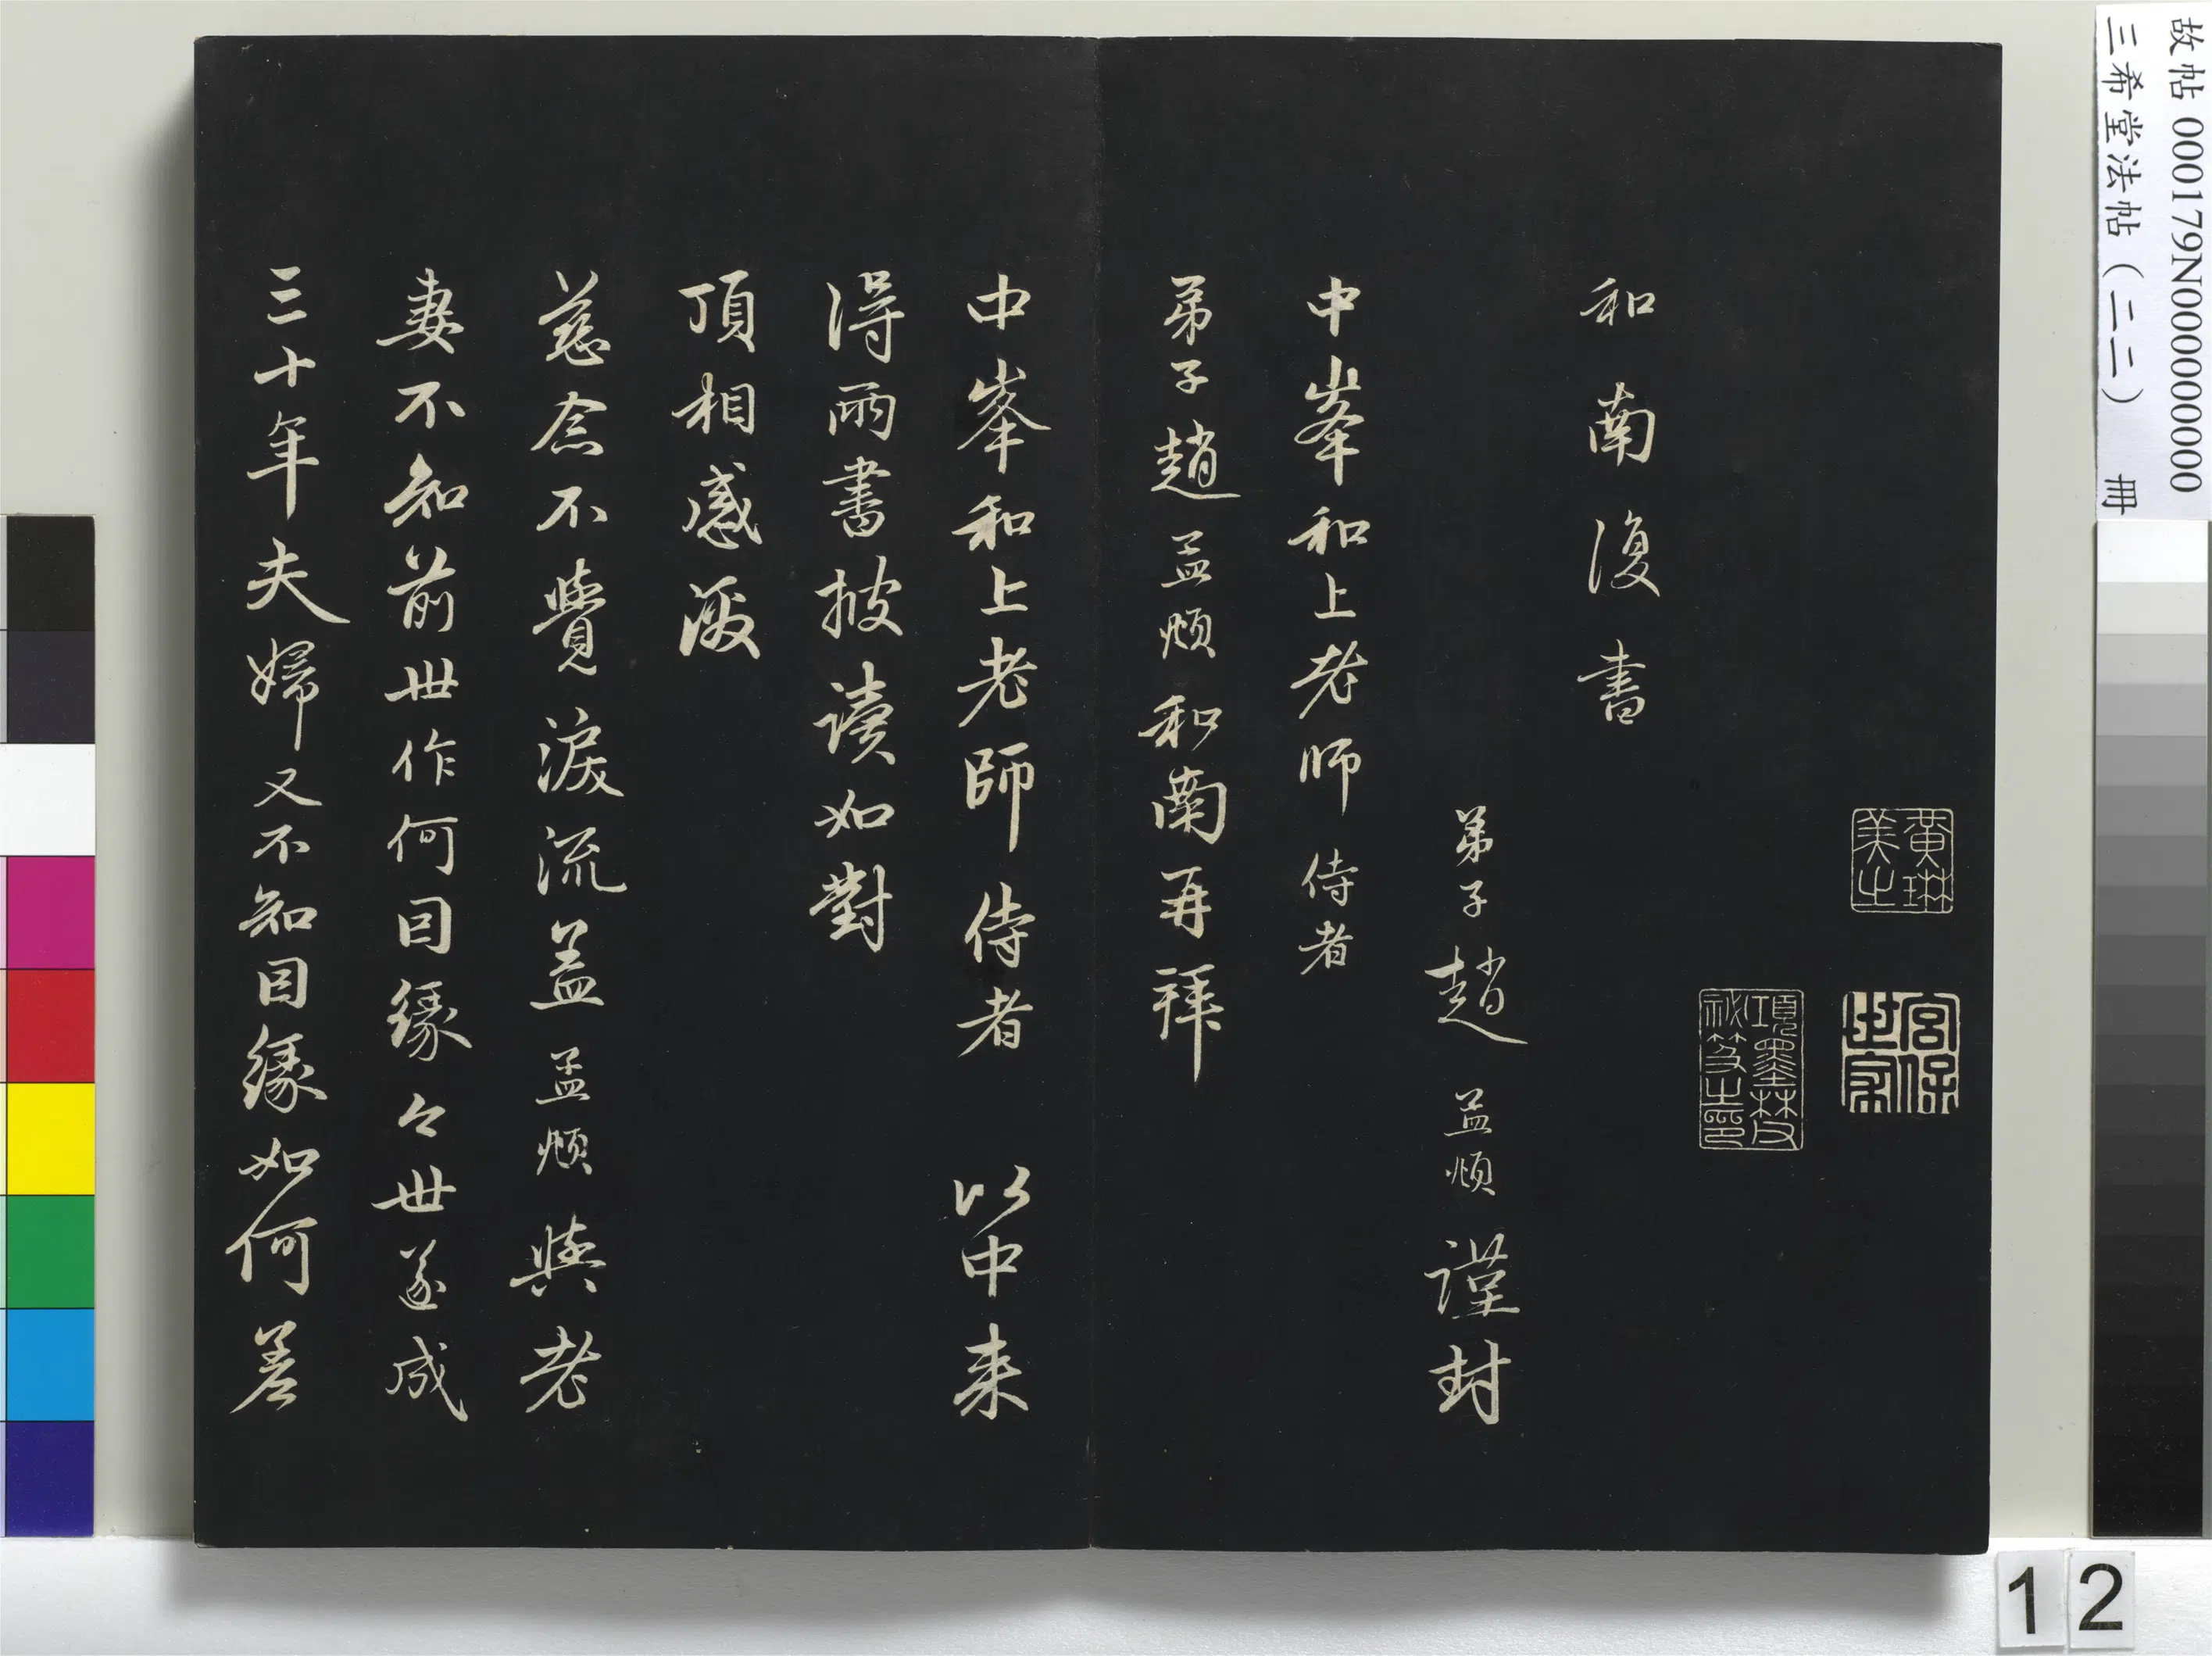 故帖 000179N000000000
三希堂法帖（二二） 冊
黃琳
美之
宮保
世家
項墨林父
祕笈之印
和南復書
弟子趙孟頫謹封
中峯和上老師侍者
弟子趙孟頫和南再拜
中峯和上老師侍者 以中来
得兩書披讀如對
頂相感激
慈念不覺淚流蓋孟頫與老
妻不知前世作何因緣今世遂成
三十年夫婦又不知因緣如何差
12